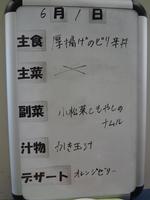 6月1日
主食 厚揚げのピリ辛丼
主菜
副菜 小松菜ともやしの
ナムル
汁物 かき玉汁
デザート オレンジゼリー